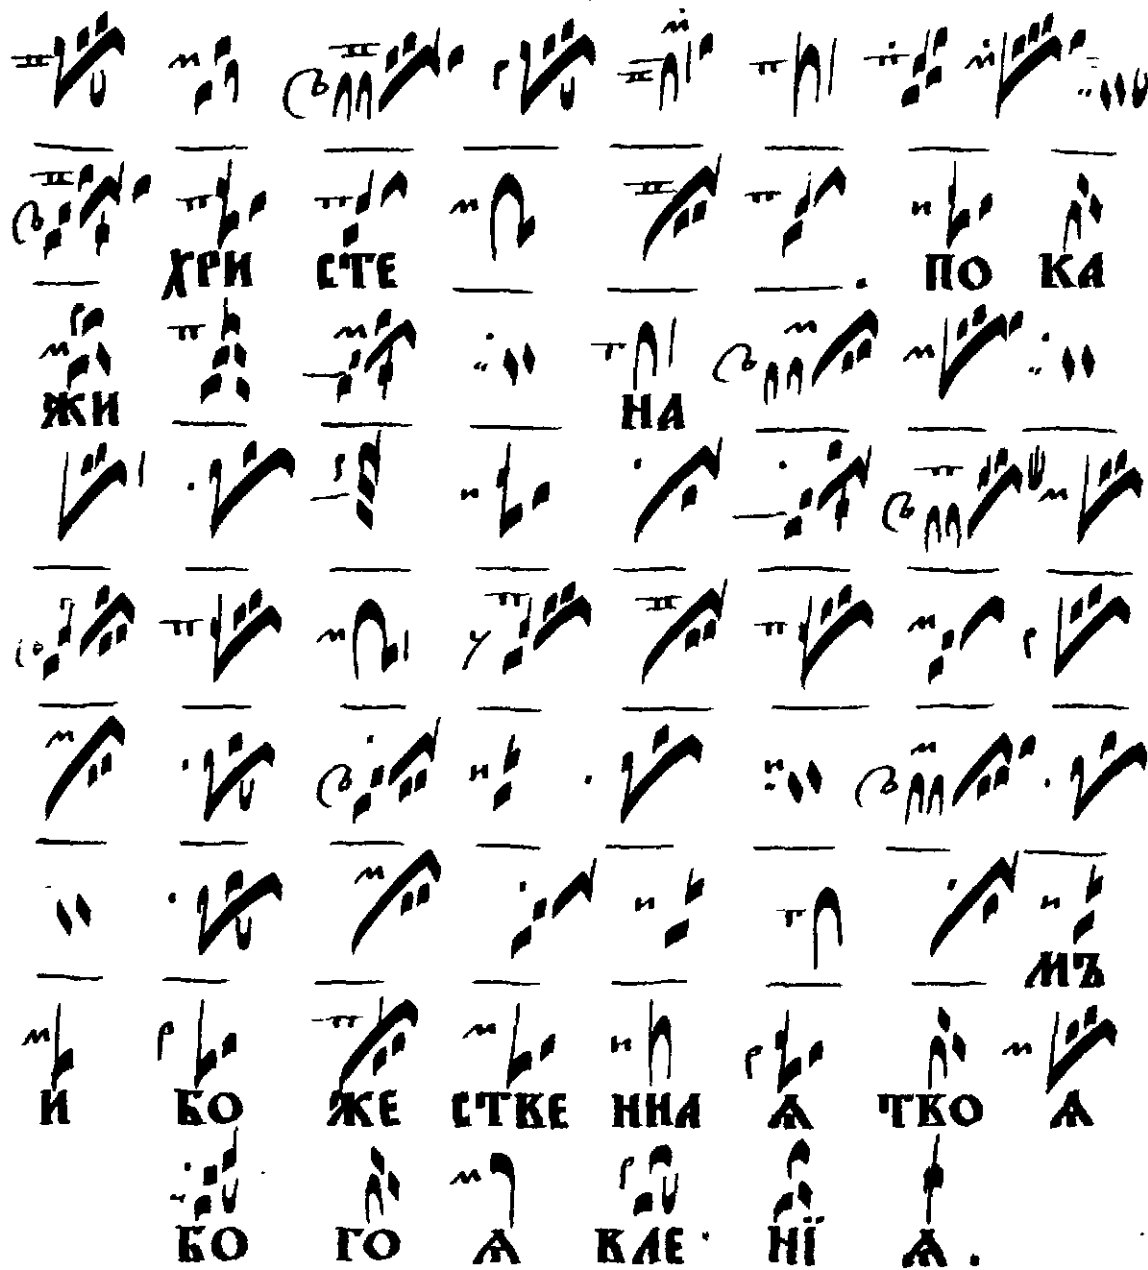 ХРИ СТЕ ПО КА
ЖИ НА
МЪ
И БО ЖЕ СТВЕ ННА Ѧ ТВО Ѧ
БО ГО Ѧ ВЛЕ НЇ Ѧ.